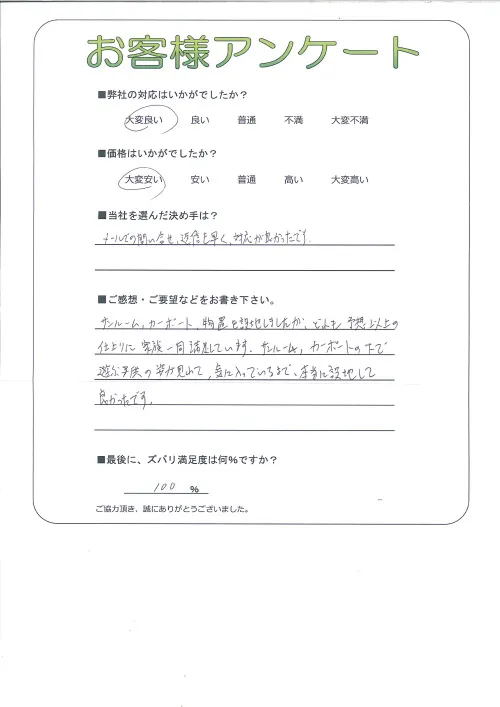 お客様アンケート
■弊社の対応はいかがでしたか?
大変良い 良い 普通 不満 大変不満
■価格はいかがでしたか?
大変安い 安い 普通 高い 大変高い
■当社を選んだ決め手は?
メールでの問い合せ、返信も早く、対応が良かったです。
■ご感想・ご要望などをお書き下さい。
サンルーム、カーポート、物置を設地しましたが、どれも予想以上の
仕上りに家族一同満足しています。サンルーム、カーポートの下で
遊ぶ子供の姿が見れて、気に入っているまで、本当に設地して
良かったです。
■最後に、ズバリ満足度は何%ですか?
100 %
ご協力頂き、誠にありがとうございました。